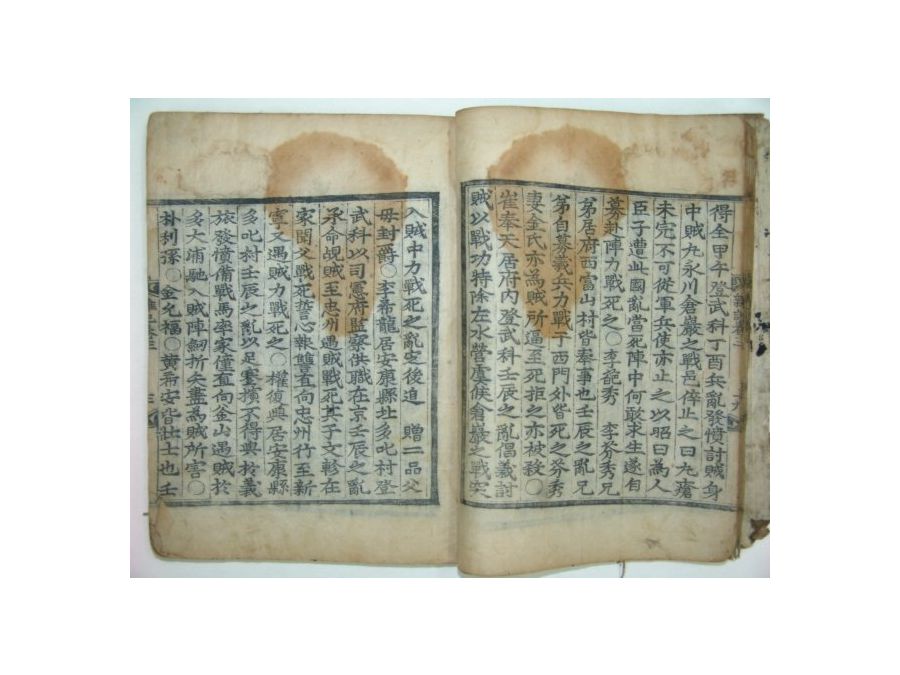 得全甲午登武科丁酉兵亂發憤討賊身
中賊丸永川倉巖之戰邑倅止之曰丸瘡
未完不可從軍兵使亦止之以昭曰爲人
臣子遭此國亂當死陣中何敢求生遂自
募赴陣力戰死之○李能秀 李芬秀兄
弟居府西富山村皆奉事也壬辰之亂兄
弟自募義兵力戰于西門外皆死之芬秀
妻金氏亦爲賊所逼至死拒之亦被殺○
崔奉天居府內登武科壬辰之亂倡義討
賊以戰功特除左水營虞候倉巖之戰突
入賊中力戰死之亂定後追 贈二品父
母封爵○李希龍居安康縣址多叱村登
武科以司憲府監察供職在京壬辰之亂
承命覘賊至忠州遇賊戰死其子文軫在
家聞父戰死誓心報讐直向忠州行至新
寧又遇賊力戰死之○權復興居安康縣
多叱村壬辰之亂以足蹇擯不得與於義
旅發憤備戰馬率家僮直向金山遇賊於
多大浦馳入賊陣劒折矢盡爲賊所害○
朴利孫○金允福○黃希安皆壯士也壬